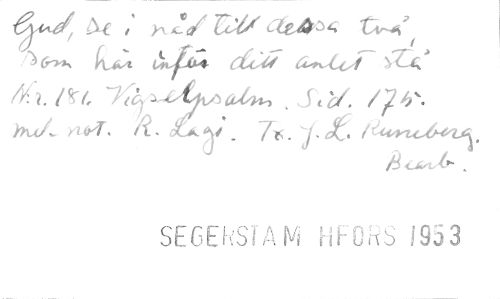 Gud, se i nåd till dessa två,
som här inför ditt anlet stå
Nr. 181. Vigselpsalm. Sid. 175.
md. not. R. Lagi. Tx. J. L. Runeberg.
Bearb.
SEGERSTAM HFORS 1953